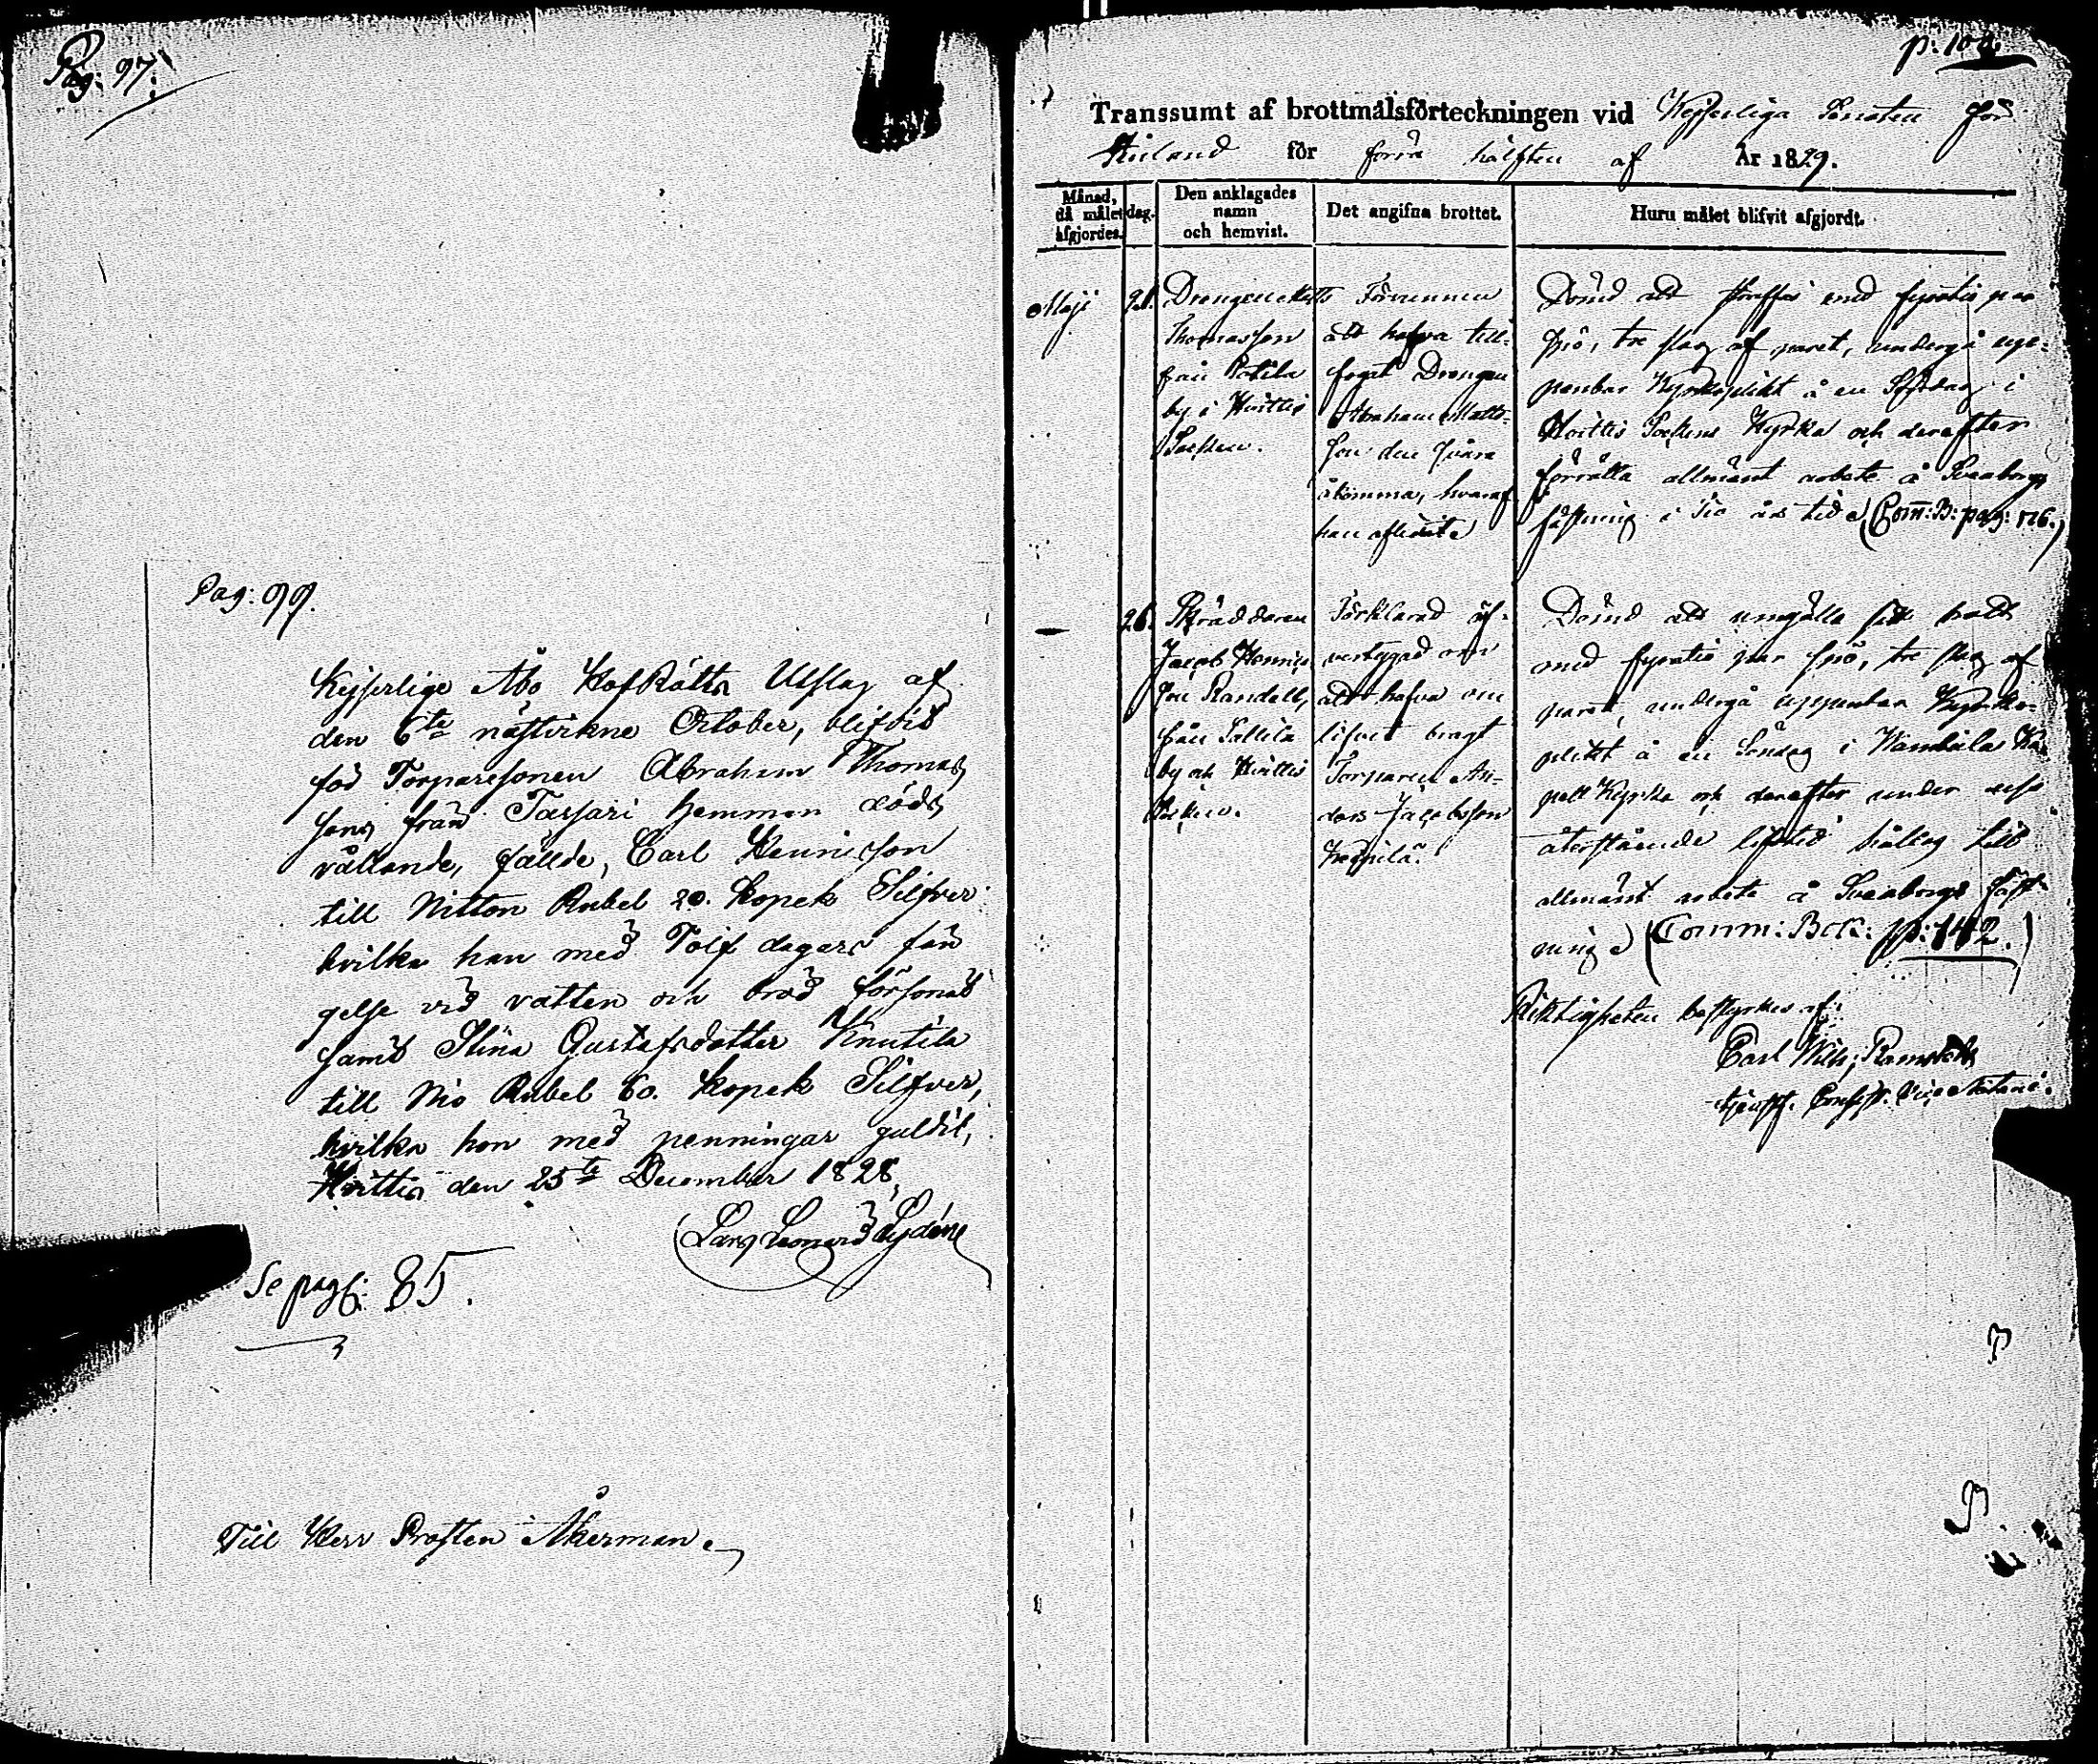 Pag: 97.
Pag: 99.
Kejserlige Åbo HofRätts Utslag af
den 6te nästvikne October, blifvit
för Torparesonen Abraham Thomas
sons från Tarsari hemman döds
vållande, fällde, Carl Henricson
till Nitton Rubel 20. Kopek Silfver
hvilka han med Tolf dagars fän
gelse vid vatten och bröd försonat
samt Stina Gustafsdotter Knutila
till Nio Rubel 60. Kopek Silfver,
hvilka hon med penningar guldit,
Hvittis den 25te December 1828.
Lars Leonard
Se pag: 85.
Till Herr Prosten Åkerman.
p: 109.
Transsumt af brottmålsförteckningen vid Kejserliga Senaten för
Finland för förra hälften af År 1829.
Månad, då målet afgjordes.
dag.
Den anklagades namn och hemvist.
Det angifna brottet.
Huru målet blifvit afgjordt.
Maji
21.
Drengen Matts
Thomasson
från
by i Hvittis
Socken.
Förvunnen
att hafva till-
fogat Drengen
Abraham Matts-
son den svåra
åkomma, hvaraf
han aflidit
Dömd att straffas med fyratio par
spö, tre slag af paret, undergå up-
penbar Kyrkoplikt å en Söndag i
Hvittis Sockens Kyrka och derefter
förrätta allmänt arbete å Sveaborgs
fästning i Tio års tid (Com: B: pag: 176.)
—
26.
Skräddaren
Jacob Henrics-
son Randell,
från Sallila
by och Hvittis
Socken.
Förklarad öf-
vertygad om
att hafva om
lifvet bragt
Torparen An-
ders Jacobsson
Dömd att umgälla sitt brott
med fyratio par spö, tre slag af
paret, undergå uppenbar Kyrko-
plikt å en Söndag i Kapell
Kyrka och derefter under
återstående lifstid hållas till
allmänt arbete å Sveaborgs fäst-
ning (Comm: Bok: p: 142.)
Riktigheten bestyrkes af:
Carl Wilh: